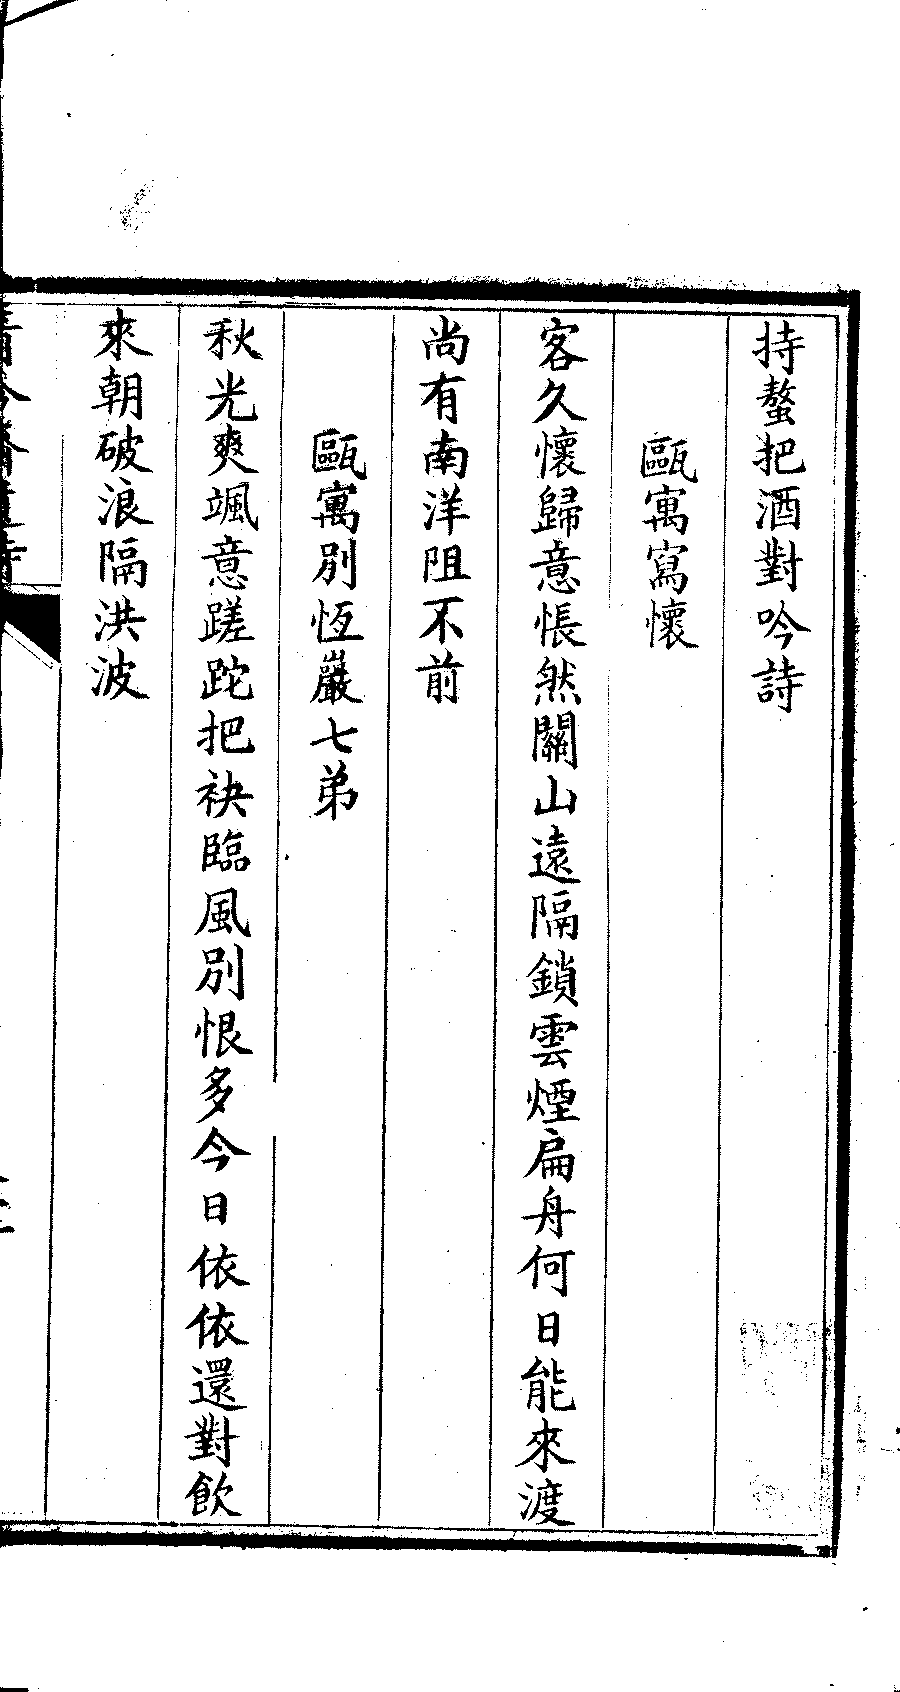 持螯把酒對吟詩
甌寓寫懷
客久懷歸意悵然關山遠隔鎖雲煙扁舟何日能來渡
尚有南洋阻不前
甌寓別恆巖七弟
秋光爽颯意蹉跎把袂臨風別恨多今日依依還對飲
來朝破浪隔洪波